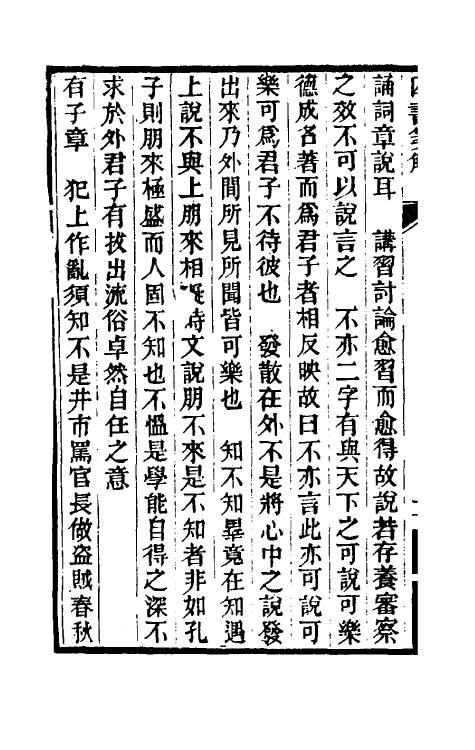 誦詞章說耳　講習討論愈習而愈得故說若存養審察
之效不可以說言之　不亦二字有與天下之可說可樂
德成名著而爲君子者相反映故曰不亦言此亦可說可
樂可爲君子不待彼也　發散在外不是將心中之說發
出來乃外間所見所聞皆可樂也　知不知畢竟在知遇
上說不與上朋來相　時文說朋不來是不知者非如孔
子則朋來極盛而人固不知也不慍是學能自得之深不
求於外君子有拔出流俗卓然自任之意
有子章　犯上作亂須知不是井市罵官長做盜賊春秋